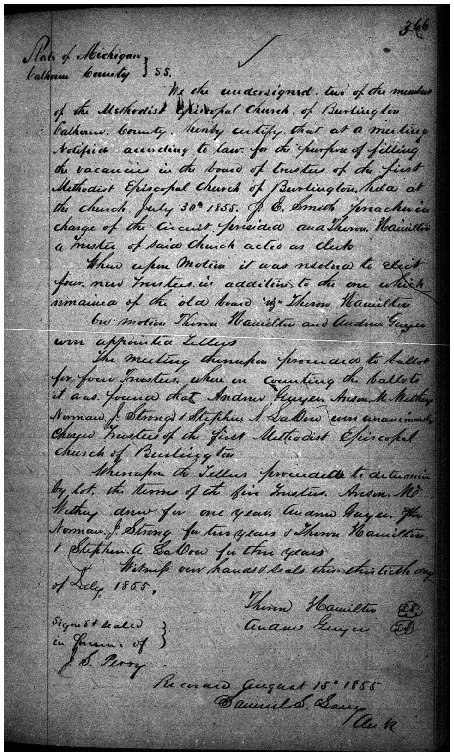 366
State of Michigan
Calhoun County } SS.
We the undersigned two of the members
of the Methodist Episcopal Church of Burlington
Calhoun County hereby certify that at a meeting
Notified according to law for the purpose of filling
the vacancies in the board of trustees of the first
Methodist Episcopal Church of Burlington, held at
the church July 30th 1855. J E. Smith preacher in
charge of the Circuit presided and Theron Hamilton
a trustee of said church acted as clerk
Where upon Motion it was resolved to elect
four new Trustees in addition to the one which
remained of the old board viz Theron Hamilton
On motion Theron Hamilton and Andrew Guyer
were appointed Tellers
The meeting thereupon proceeded to ballot
for four Trustees, when on counting the ballots
it was found that Andrew Guyer, Anson M. Withey
Norman J. Strong & Stephen A LaDow were unanimously
Chosen Trustees of the First Methodist Episcopal
Church of Burlington
Whereupon the Tellers proceeded to determine
by lot, the terms of the five Trustees. Anson M
Withey drew for one year, Andrew Guyer
Norman J. Strong for two years & Theron Hamilton
& Stephen A LaDow for three years
Witness our hands & seals this thirtieth day
of July 1855.
Theron Hamilton
Andrew Guyer
Signed & sealed
in presence of }
J S. Perry
Received August 15th 1855
Samuel S.
Clerk